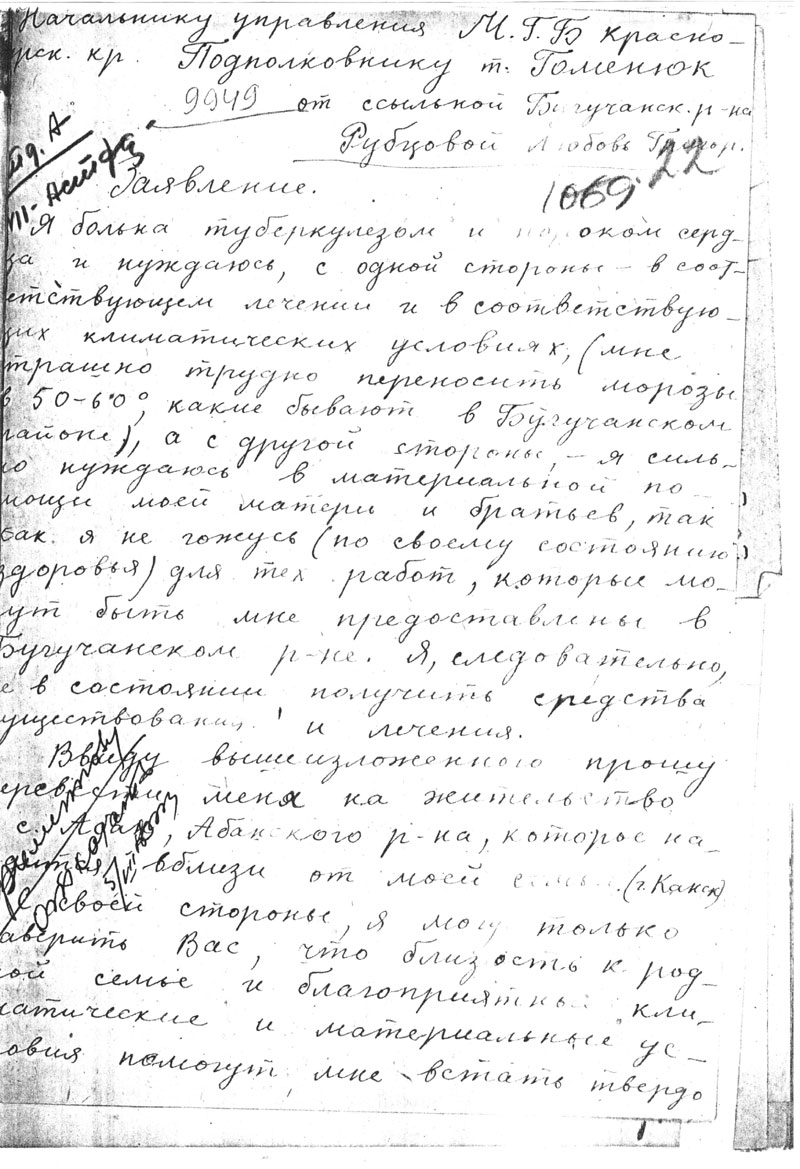 Начальнику управления М.Г.Б Красно-
рск. кр. Подполковнику т. Гоменюк
9949 от ссыльной Бугучанск. р-на
Рубцовой Любовь Григор.
1069.22
Заявление.
Я больна туберкулезом и пороком серд-
ца и нуждаюсь, с одной стороны – в соот-
етствующем лечении и в соответствую-
щих климатических условиях, (мне
трашно трудно переносить морозы
в 50-60°, какие бывают в Бугучанском
районе), а с другой стороны, – я силь-
но нуждаюсь в материальной по-
мощи моей матери и братьев, так
как я не гожусь (по своему состоянию
здоровья) для тех работ, которые мо-
гут быть мне предоставлены в
Бугучанском р-не. Я, следовательно,
е в состоянии получить средства
уществования и лечения.
Ввиду вышеизложенного прошу
еревести меня на жительство
с. Абан, Абанского р-на, которое на-
вблизи от моей семьи (г. Канск)
своей стороны, я могу только
аверить Вас, что близость к род-
ной семье и благоприятные кли-
матические и материальные ус-
овия помогут мне встать твердо